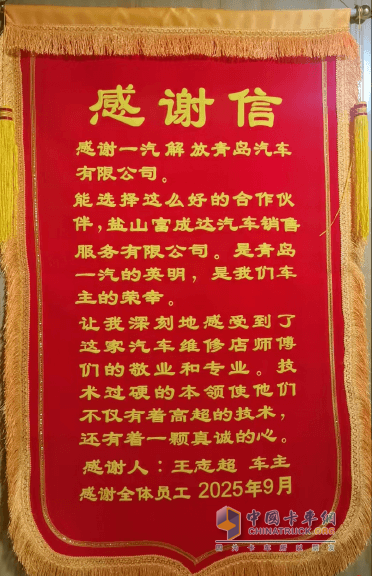 感谢信
感谢一汽解放青岛汽车
有限公司。
能选择这么好的合作伙
伴，盐山富成达汽车销售
服务有限公司。是青岛
一汽的英明，是我们车
主的荣幸。
让我深刻地感受到了
这家汽车维修店师傅
们的敬业和专业。技
术过硬的本领使他们
不仅有着高超的技术，
还有着一颗真诚的心。
感谢人：王志超 车主
感谢全体员工 2025年9月
中国卡车网
CHINATRUCK.COM